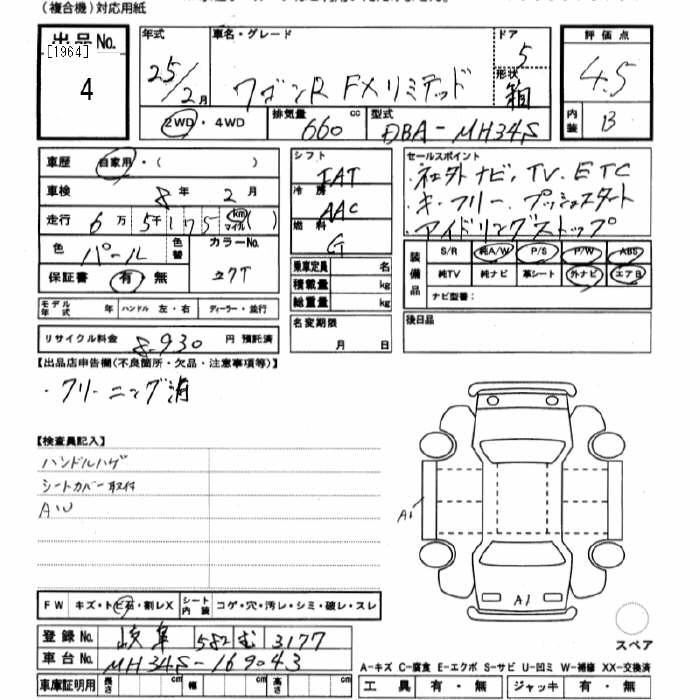 (複合機)対応用紙
出品No.
[1964]
4
年式
25/2月
車名・グレード
ワゴンR FXリミテッド
ドア
5
形状
箱
2WD・4WD
排気量 660 cc
型式
DBA-MH34S
評価点
4.5
内装
B
車歴 自家用・( )
車検 8年 2月
走行 6万5千175 km マイル ( )
色 パール 色替
カラーNo.
ZVT
保証書 有・無
モデル年式 年 ハンドル 左・右 ディーラー・並行
リサイクル料金 8,930 円 預託済
シフト
IAT
冷房
AAC
燃料
G
乗車定員 名
積載量 kg
総重量 kg
名変期限
月 日
セールスポイント
・社外ナビ、TV、ETC
・キーフリー、プッシュスタート
・アイドリングストップ
装備品
S/R 純A/W P/S P/W ABS
純TV 純ナビ 革シート 外ナビ エアB
ナビ型番:
後日品
【出品店申告欄(不良箇所・欠品・注意事項等)】
・クリーニング済
【検査員記入】
ハンドルハゲ
シートカバー取付
AU
A1
A1
スペア
FW キズ・トビ石・割レX シート内装 コゲ・穴・汚レ・シミ・破レ・スレ
登録No. 岐阜 582 む 3177
車台No. MH34S-169043
車庫証明用 長さ cm 幅 cm 高さ cm
A-キズ C-腐食 E-エクボ S-サビ U-凹ミ W-補修 XX-交換済
工具 有・無 ジャッキ 有・無